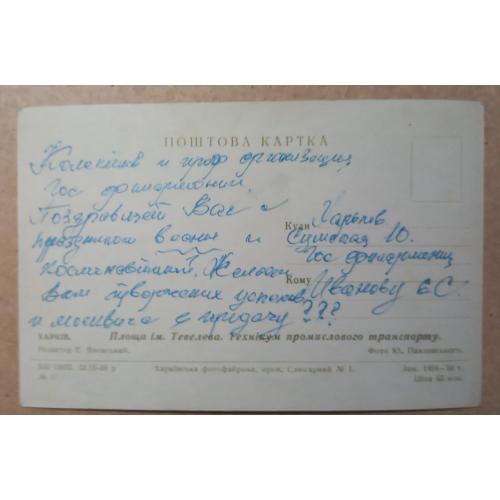 ПОШТОВА КАРТКА
Коллектив и проф организация
Гос филармонии.
Поздравляем Вас с
праздником весны и
Космонавтики. Желаем
Вам творческих успехов,
и москвича в придачу ???
Куди Харьков
Сумская 10.
Гос филармония
Кому Иванову ЄС.
ХАРКІВ. Площа ім. Тевелева. Технікум промислового транспорту.
Редактор Е. Яновський. Фото Ю.
Харківська фотофабрика, пров. Слюсарний № 1.
Ціна 65 коп.